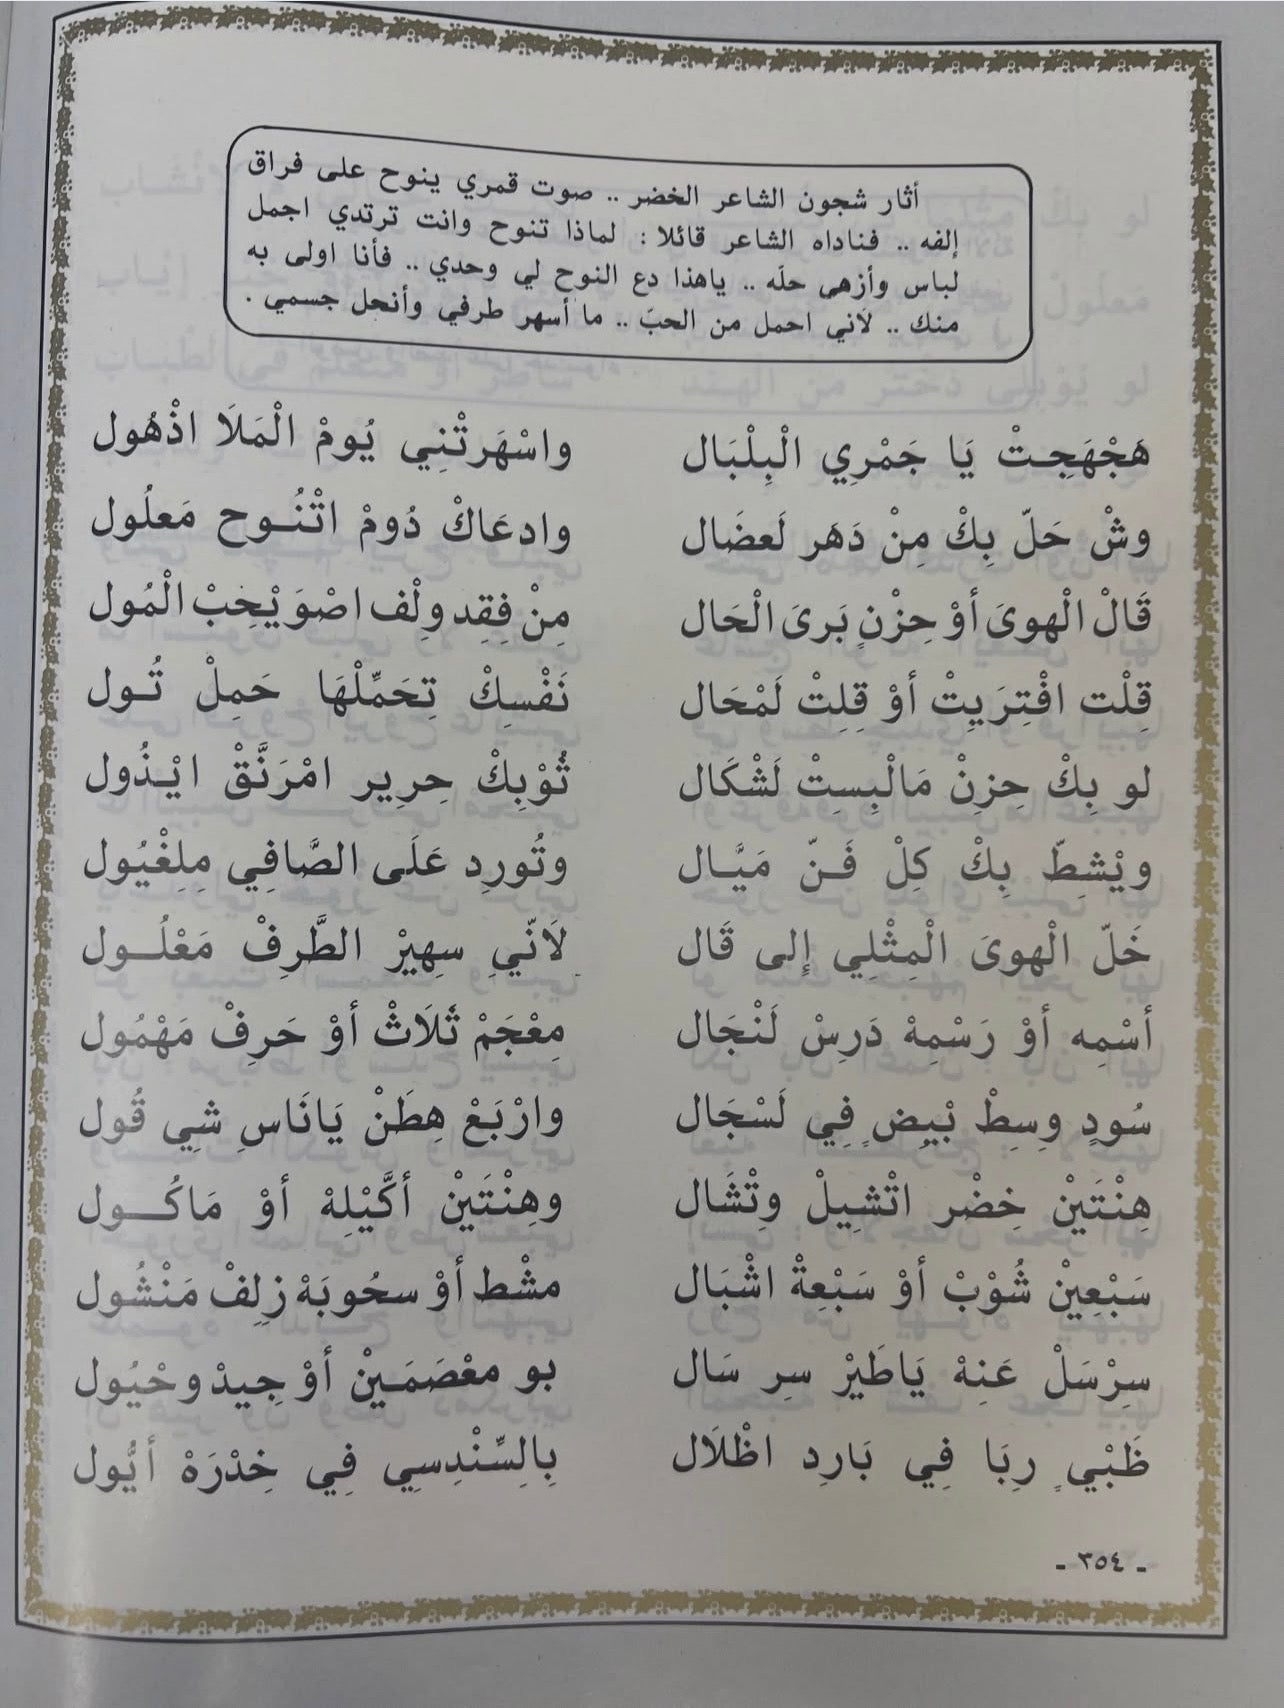 أثار شجون الشاعر الخضر .. صوت قمري ينوح على فراق
إلفه .. فناداه الشاعر قائلا : لماذا تنوح وانت ترتدي اجمل
لباس وأزهى حلّه .. ياهذا دع النوح لي وحدي .. فأنا اولى به
منك .. لأني احمل من الحبّ .. ما أسهر طرفي وأنحل جسمي .
هَجْهَجِتْ يَا جَمْرِي الْبِلْبَال واسْهَرتْنِي يُومْ الْمَلَا اذْهُول
وشْ حَلّ بِكْ مِنْ دَهَر لَعضَال وادعَاكْ دُومْ اتْنُوح مَعلُول
قَالْ الْهوىَ أوْ حِزْنٍ بَرىَ الْحَال مِنْ فِقِد ولْف اصْوَيْحِبْ الْمُول
قِلْت افْتِرَيِتْ أوْ قِلِتْ لَمْحَال نَفْسِكْ تِحَمِّلْهَا حَمِلْ تُول
لو بِكْ حِزِنْ مَالْبِسِتْ لَشْكَال ثُوْبِكْ حِرِير امْرَنَّقْ ايْذُول
ويْشِطّ بِكْ كِلْ فَنّ مَيَّال وتُورِد عَلَى الصَّافِي مِلِغْيُول
خَلّ الْهوىَ الْمِثْلِي إِلى قَال لَانّي سِهِيرْ الطَّرِفْ مَعْلُول
أسْمِه أوْ رَسْمِهْ دَرِسْ لَنْجَال مِعْجَمْ ثَلَاثْ أوْ حَرِفْ مَهْمُول
سُودٍ وِسِطْ بْيِضٍ فِي لَسْجَال وارْبَعْ هِطَنْ يَانَاسِ شِي قُول
هِنْتَيْنْ خِضْر اتْشِيلْ وِتْشَال وهِنْتَيْنْ أكَّيْلِهْ أوْ مَاكُول
سَبْعِيْنْ شُوْبْ أوْ سَبْعِةْ اشْبَال مشْط أوْ سحُوبَهْ زلِفْ مَنْشُول
سِرْسَلْ عَنِهْ يَاطَيْرْ سِر سَال بو معْصَمَيْنْ أوْ جِيدْ وحْيُول
ظَبْيٍ رِبَا فِي بَارِدِ اظْلَال بِالِسِّنْدِسِي فِي خِدْرَهْ أيُّول
- ٣٥٤ -